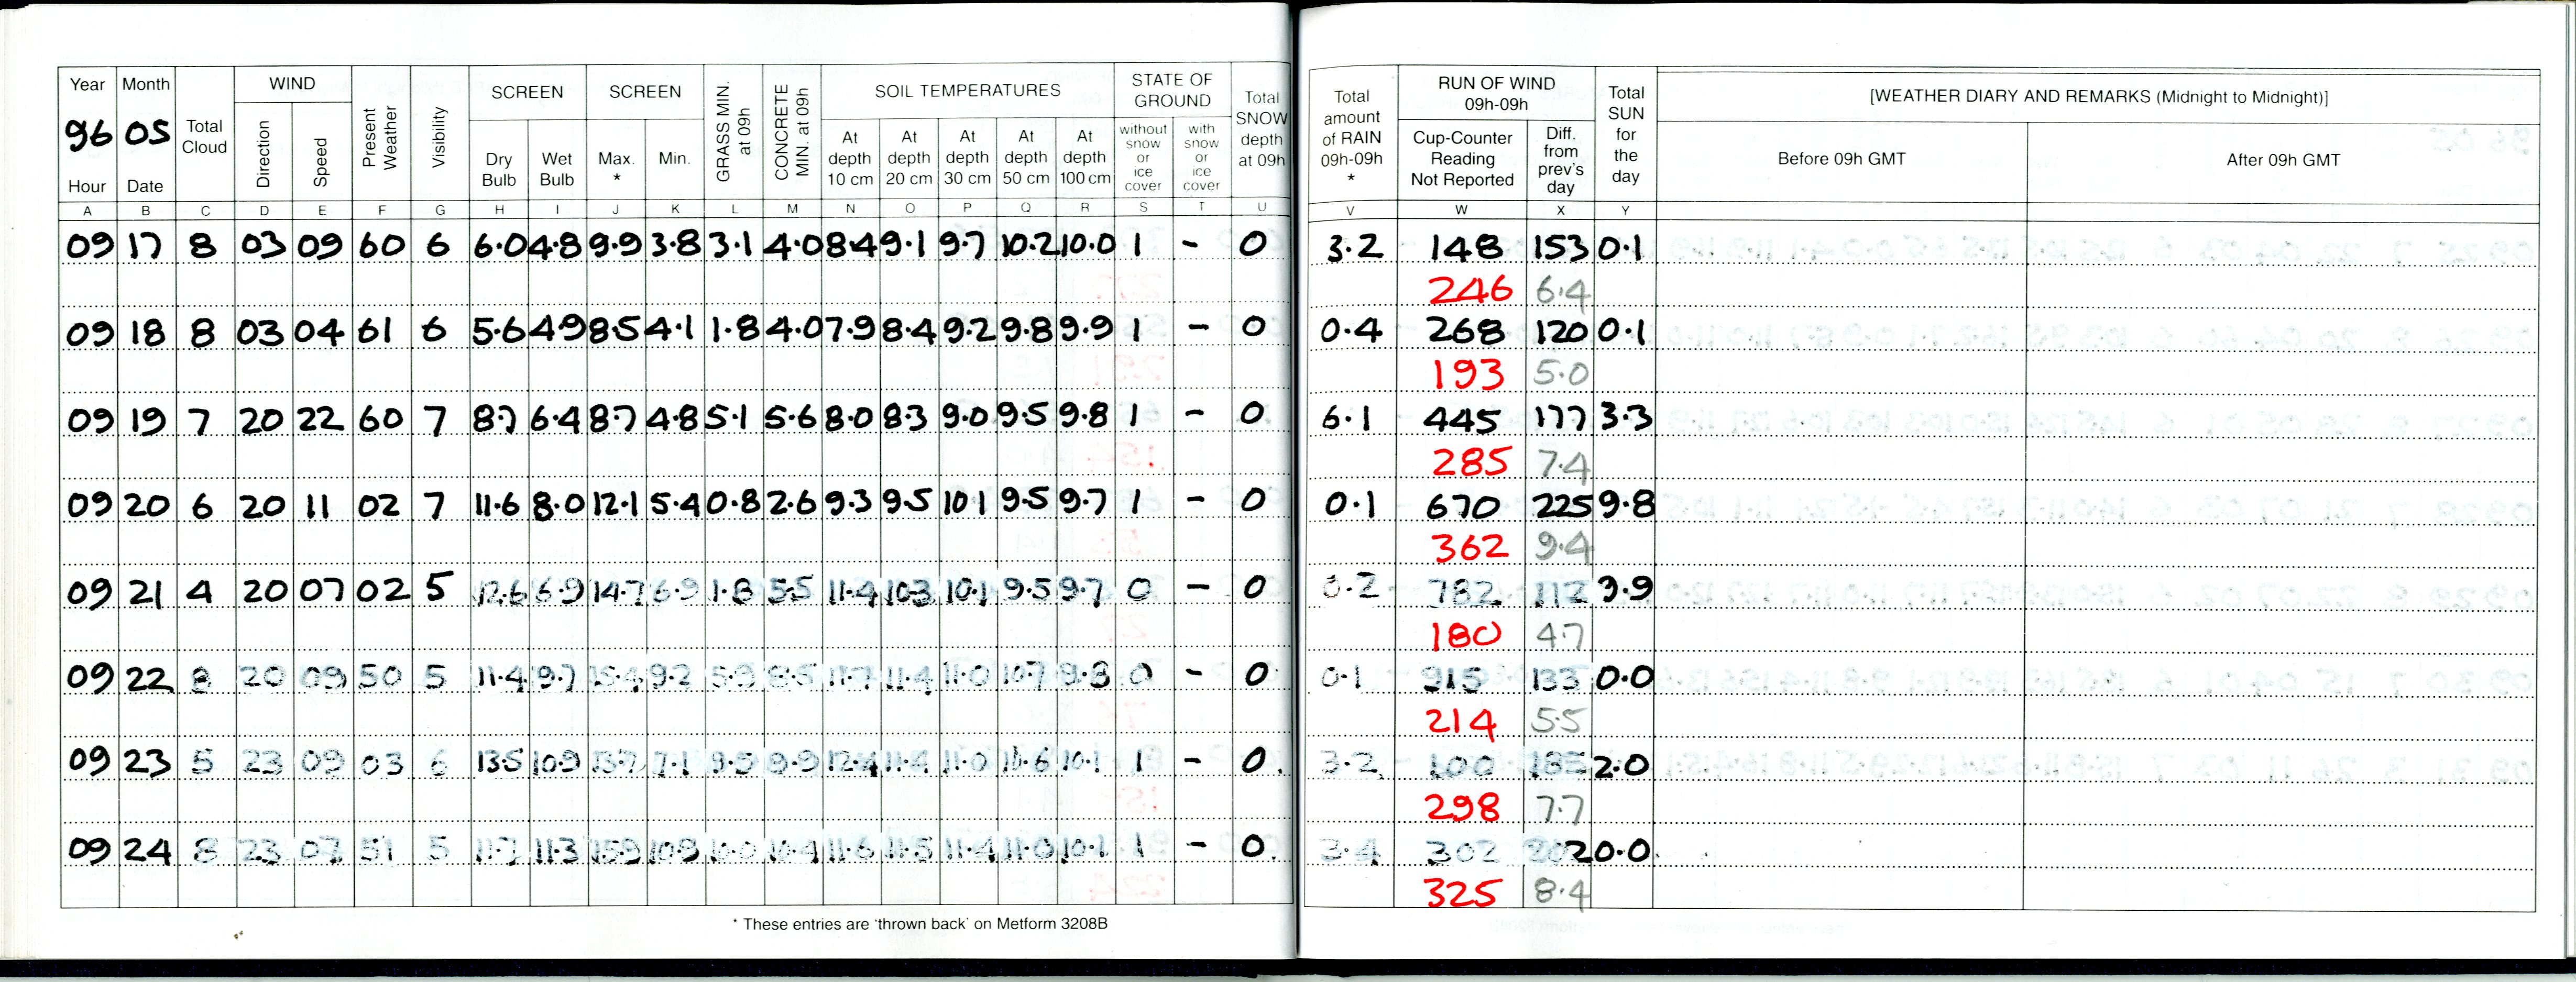 Year Month Total Cloud WIND Direction Speed Present Weather Visibility SCREEN Dry Bulb Wet Bulb SCREEN Max. * Min. GRASS MIN. at 09h CONCRETE MIN. at 09h SOIL TEMPERATURES At depth 10 cm At depth 20 cm At depth 30 cm At depth 50 cm At depth 100 cm STATE OF GROUND without snow or ice cover with snow or ice cover Total SNOW depth at 09h Total amount of RAIN 09h-09h * RUN OF WIND 09h-09h Cup-Counter Reading Not Reported Diff. from prev's day Total SUN for the day [WEATHER DIARY AND REMARKS (Midnight to Midnight)] Before 09h GMT After 09h GMT
96 05
Hour Date
A B C D E F G H I J K L M N O P Q R S T U V W X Y
09 17 8 03 09 60 6 6.0 4.8 9.9 3.8 3.1 4.0 8.4 9.1 9.7 10.2 10.0 1 - 0 3.2 148 153 0.1
246 6.4
09 18 8 03 04 61 6 5.6 4.9 8.5 4.1 1.8 4.0 7.9 8.4 9.2 9.8 9.9 1 - 0 0.4 268 120 0.1
193 5.0
09 19 7 20 22 60 7 8.7 6.4 8.7 4.8 5.1 5.6 8.0 8.3 9.0 9.5 9.8 1 - 0 6.1 445 177 3.3
285 7.4
09 20 6 20 11 02 7 11.6 8.0 12.1 5.4 0.8 2.6 9.3 9.5 10.1 9.5 9.7 1 - 0 0.1 670 225 9.8
362 9.4
09 21 4 20 07 02 5 12.6 6.9 14.7 6.9 1.8 5.5 11.4 10.3 10.1 9.5 9.7 0 - 0 0.2 782 112 3.9
180 4.7
09 22 8 20 09 50 5 11.4 9.7 15.4 9.2 11.7 11.4 11.0 10.7 9.8 0 - 0 0.1 915 133 0.0
214 5.5
09 23 5 23 09 03 6 13.5 10.9 13.7 7.1 9.5 9.9 12.4 11.4 11.0 10.6 10.1 1 - 0 3.2 100 185 2.0
298 7.7
09 24 8 23 07 51 5 11.7 11.3 15.9 10.8 10.0 10.4 11.6 11.5 11.4 11.0 10.1 1 - 0 3.4 302 202 0.0
325 8.4
* These entries are 'thrown back' on Metform 3208B